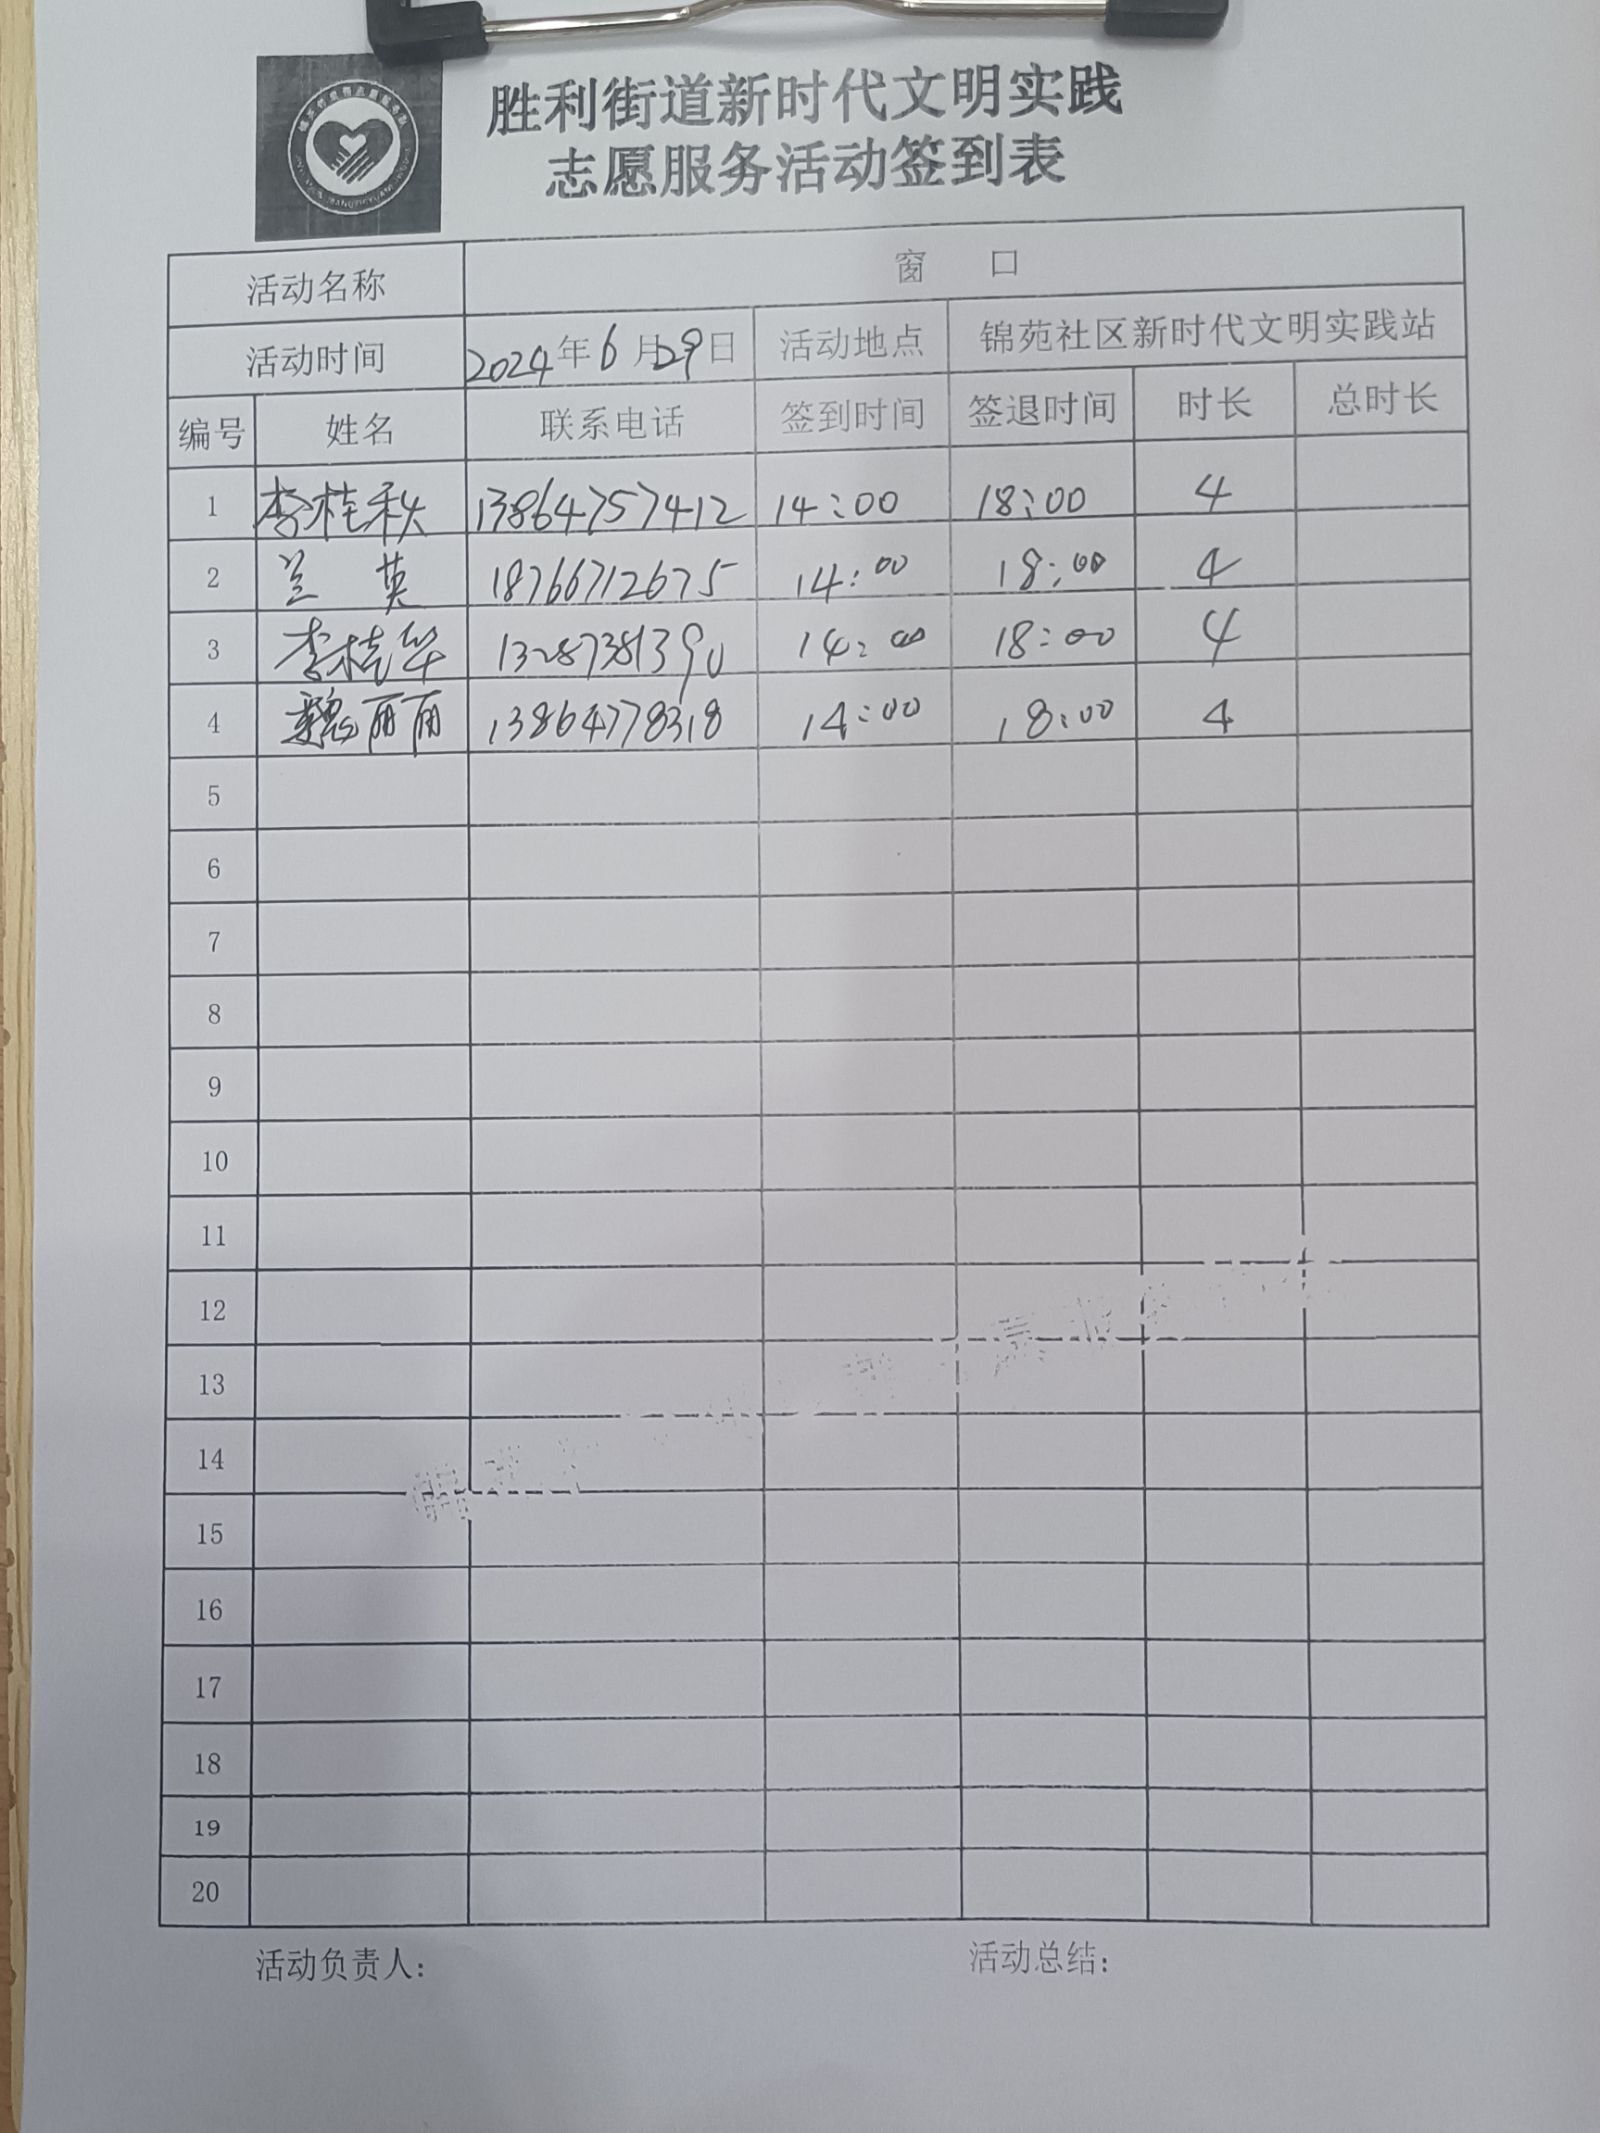 胜利街道新时代文明实践
志愿服务活动签到表
活动名称 窗 口
活动时间 2024年6月29日 活动地点 锦苑社区新时代文明实践站
编号 姓名 联系电话 签到时间 签退时间 时长 总时长
1 李桂秋 13864757412 14:00 18:00 4
2 兰英 18766712675 14:00 18:00 4
3 李桂华 13287381390 14:00 18:00 4
4 魏丽丽 13864778318 14:00 18:00 4
5
6
7
8
9
10
11
12
13
14
15
16
17
18
19
20
活动负责人: 活动总结: